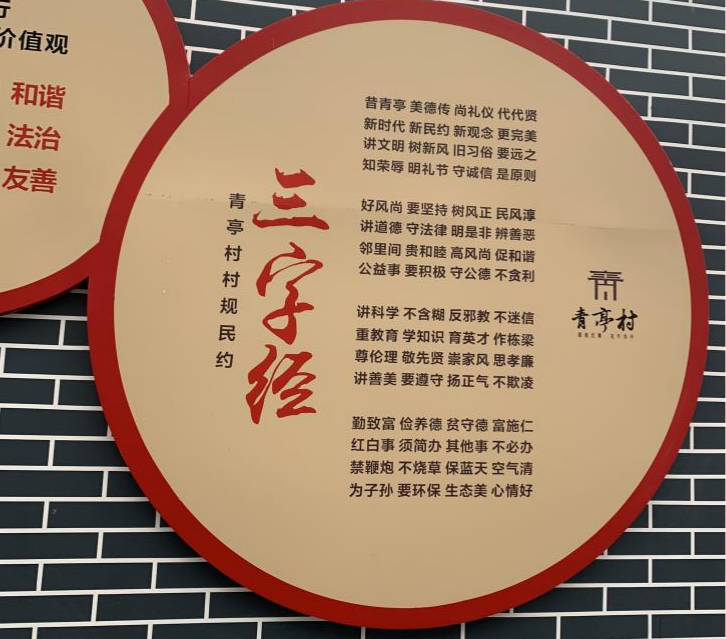 行
价值观
和谐
法治
友善
青亭村村规民约
三字经
昔青亭 美德传 尚礼仪 代代贤
新时代 新民约 新观念 更完美
讲文明 树新风 旧习俗 要远之
知荣辱 明礼节 守诚信 是原则
好风尚 要坚持 树风正 民风淳
讲道德 守法律 明是非 辨善恶
邻里间 贵和睦 高风尚 促和谐
公益事 要积极 守公德 不贪利
讲科学 不含糊 反邪教 不迷信
重教育 学知识 育英才 作栋梁
尊伦理 敬先贤 崇家风 思孝廉
讲善美 要遵守 扬正气 不欺凌
勤致富 俭养德 贫守德 富施仁
红白事 须简办 其他事 不必办
禁鞭炮 不烧草 保蓝天 空气清
为子孙 要环保 生态美 心情好
青亭村